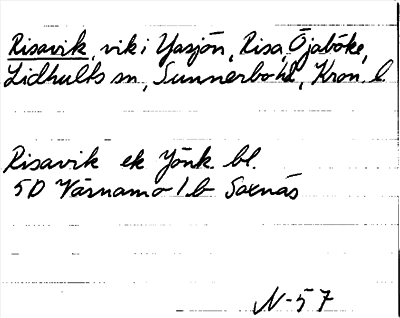 Risavik, vik i Yasjön, Risa, Öjaböke,
Lidhults sn, Sunnerbo hd, Kron. l.
Risavik ek Jönk. bl.
5D Värnamo 1b Saxnäs
N-57